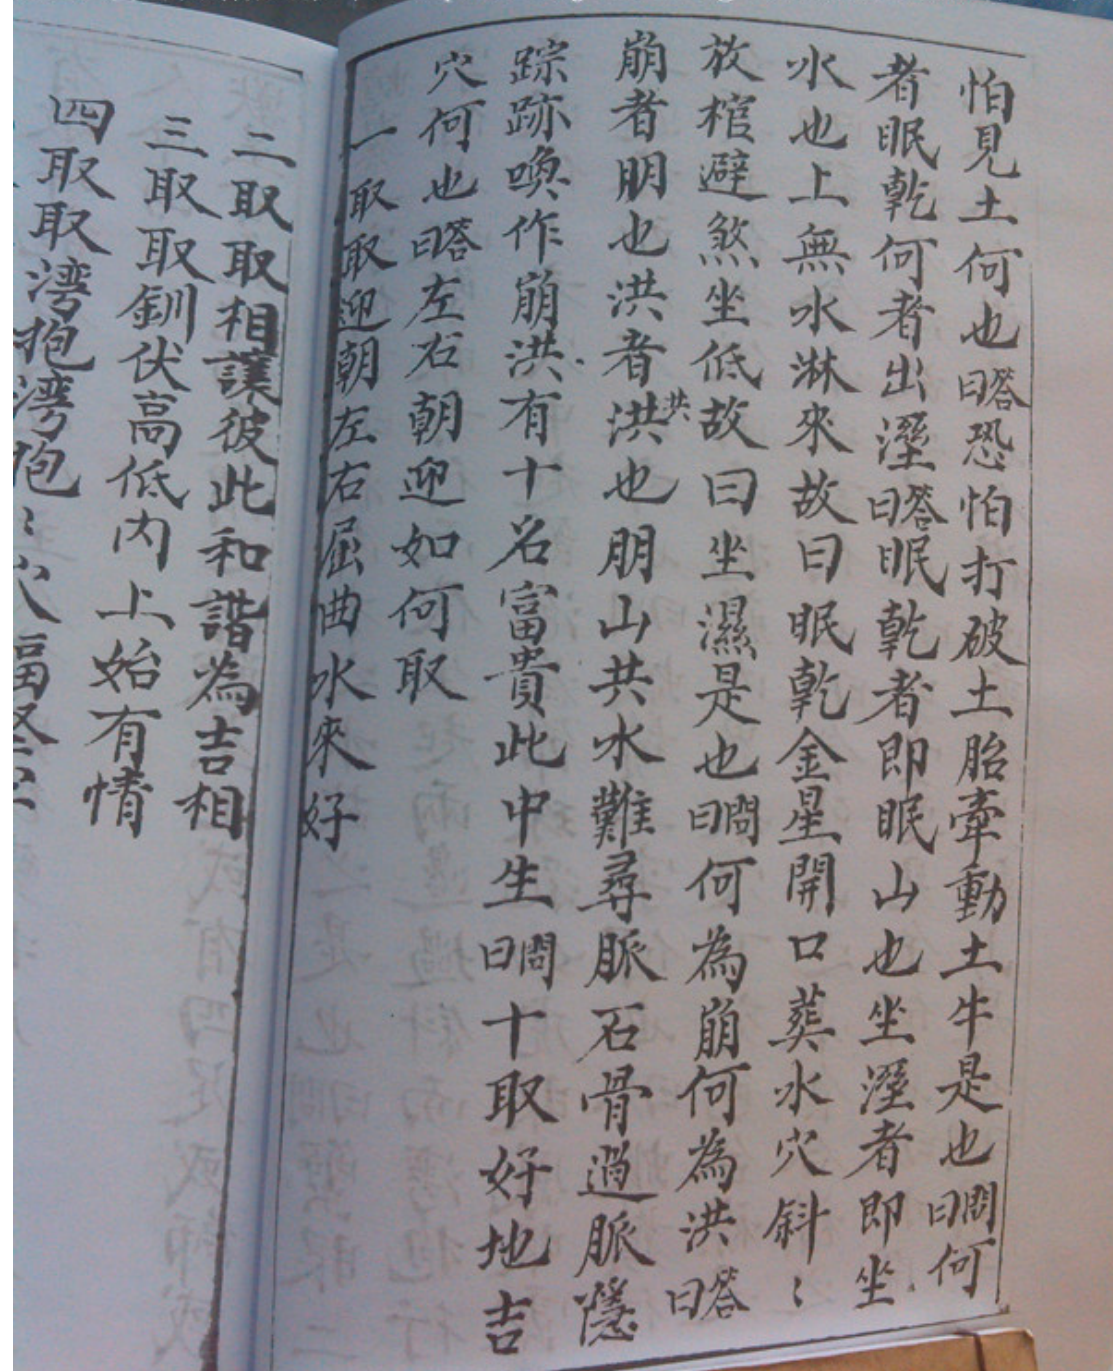 怕見土何也答曰恐怕打破土胎牽動土牛是也問曰何
者眠乾何者出溼答曰眠乾者即眠山也坐溼者即坐
水也上無水淋來故曰眠乾金星開口葬水穴斜〻
放棺避煞坐低故曰坐濕是也問曰何為崩何為洪答曰
崩者朋也洪者洪共也朋山共水難尋脈石骨過脈隱
踪跡喚作崩洪有十名富貴此中生問曰十取好地吉
穴何也答曰左右朝迎如何取
一取取迎朝左右屈曲水來好
二取取相讓彼此和諧為吉相
三取取釧伏高低內上始有情
四取取湾抱湾抱〻穴福